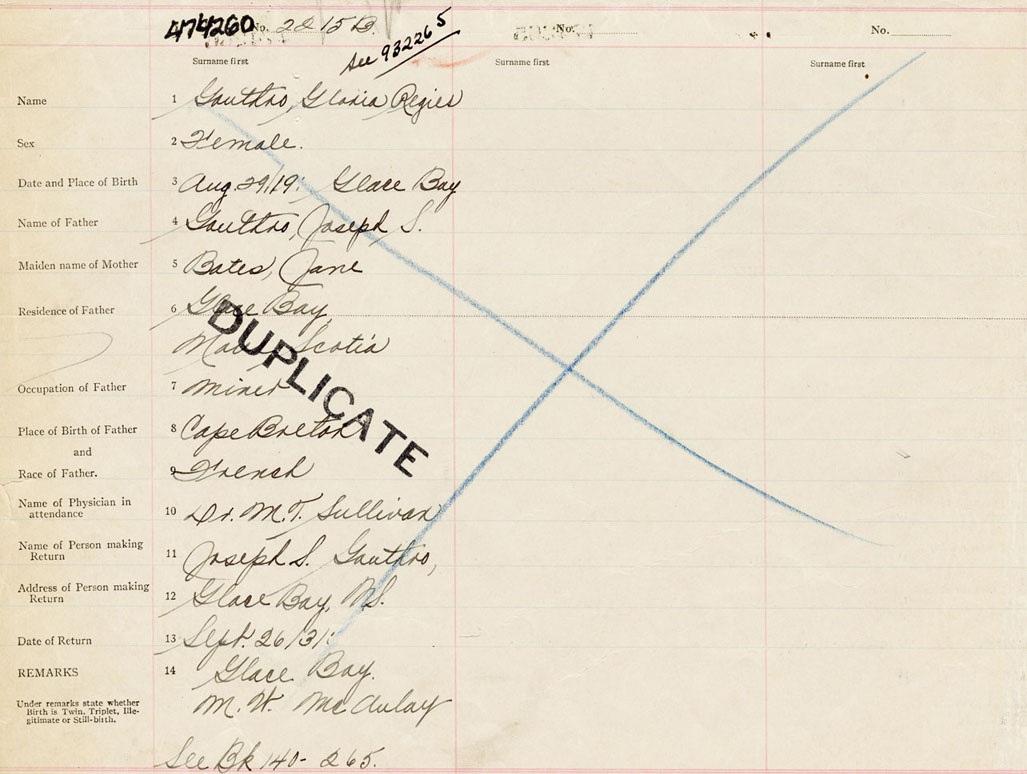 474260 No. 2215 B. No. No.
See 932265
Surname first Surname first Surname first
Name 1 Gouthro, Gloria
Sex 2 Female.
Date and Place of Birth 3 Aug. 29/19: Glace Bay
Name of Father 4 Gouthro, Joseph S.
Maiden name of Mother 5 Bates, Jane
Residence of Father 6 Glace Bay,
Nova Scotia
DUPLICATE
Occupation of Father 7 Miner
Place of Birth of Father 8 Cape Breton
and
Race of Father. 9 French
Name of Physician in
attendance 10 Dr. M.T. Sullivan
Name of Person making
Return 11 Joseph S. Gouthro,
Address of Person making
Return 12 Glace Bay, N.S.
Date of Return 13 Sept. 26/31:
REMARKS 14 Glace Bay.
Under remarks state whether
Birth is Twin, Triplet, Ille-
gitimate or Still-birth.
M. W. McAulay
See Bk 140- 265.